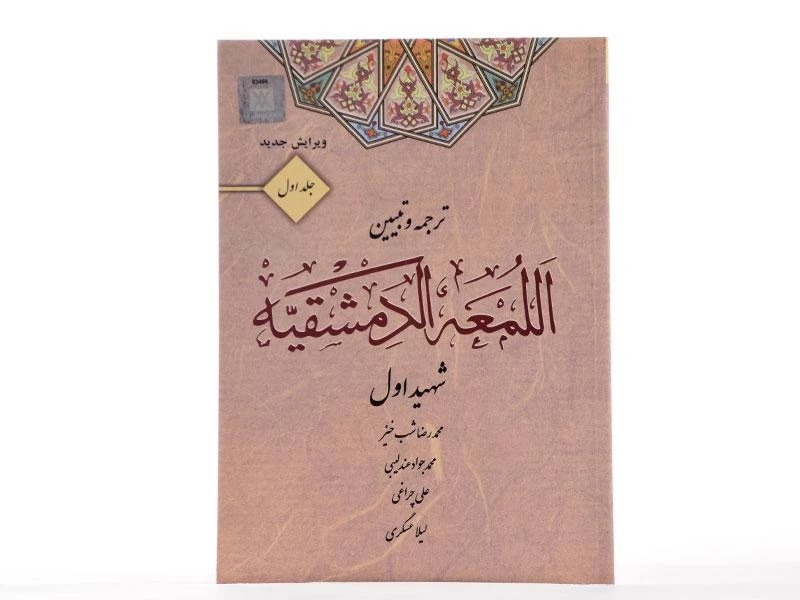 03466
ویرایش جدید
جلد اول
ترجمه و تبیین
اَللُمعَه الدِمشقیّه
شهید اول
محمدرضا شب خیز
محمدجواد عندلیبی
علی چراغی
لیلا عسکری